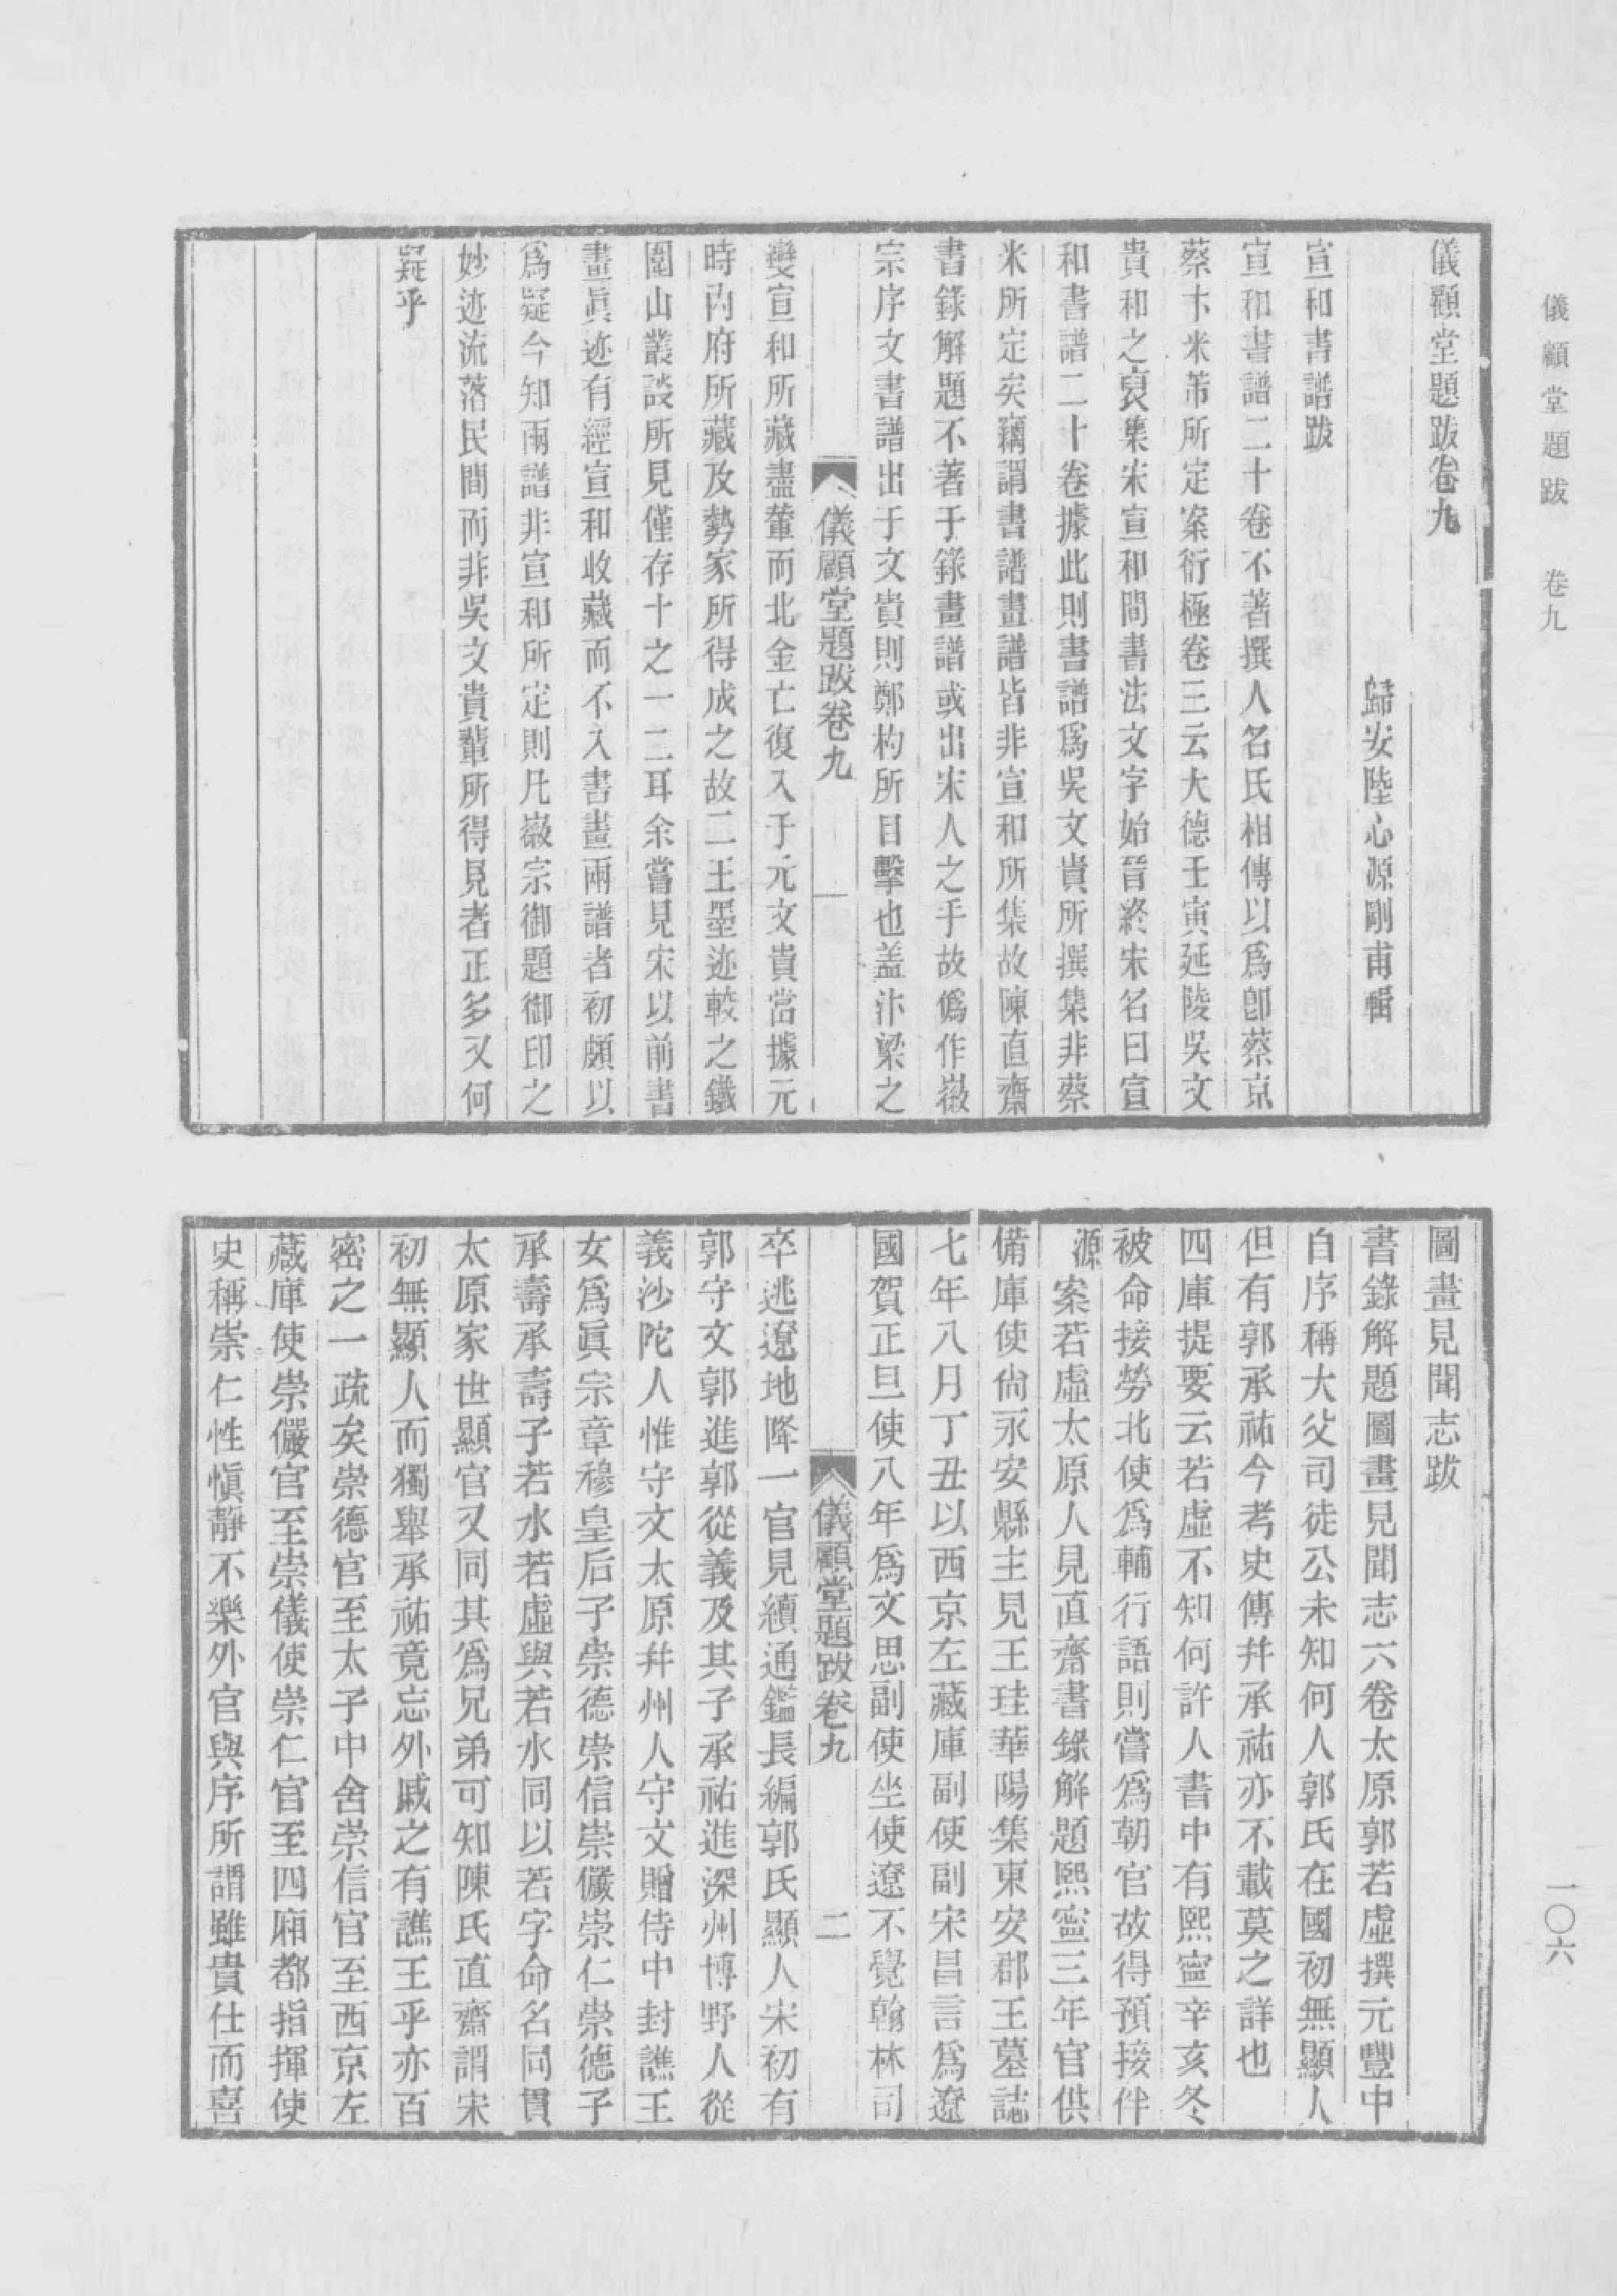 儀顧堂題跋　卷九
儀顧堂題跋卷九
歸安陸心源剛甫輯
宣和書譜跋
宣和書譜二十卷不著撰人名氏相傳以爲卽蔡京
蔡卞米芾所定案衍極卷三云大德壬寅延陵吳文
貴和之裒集宋宣和間書法文字始晉終宋名曰宣
和書譜二十卷據此則書譜爲吳文貴所撰集非蔡
米所定矣竊謂書譜畫譜皆非宣和所集故陳直齋
書錄解題不著于錄畫譜或出宋人之手故僞作徽
宗序文書譜出于文貴則鄭杓所目擊也盖汴梁之
儀顧堂題跋卷九
一
變宣和所藏盡輦而北金亡復入于元文貴當據元
時內府所藏及勢家所得成之故二王墨迹較之鐵
圍山叢談所見僅存十之一二耳余嘗見宋以前書
畫眞迹有經宣和收藏而不入書畫兩譜者初頗以
爲疑今知兩譜非宣和所定則凡徽宗御題御印之
妙迹流落民間而非吳文貴輩所得見者正多又何
疑乎
圖畫見聞志跋
書錄解題圖畫見聞志六卷太原郭若虛撰元豐中
自序稱大父司徒公未知何人郭氏在國初無顯人
但有郭承祐今考史傳幷承祐亦不載莫之詳也
四庫提要云若虛不知何許人書中有熙寧辛亥冬
被命接勞北使爲輔行語則嘗爲朝官故得預接伴
源案若虛太原人見直齋書錄解題熙寧三年官供
備庫使尙永安縣主見王珪華陽集東安郡王墓誌
七年八月丁丑以西京左藏庫副使副宋昌言爲遼
國賀正旦使八年爲文思副使坐使遼不覺翰林司
儀顧堂題跋卷九
二
卒逃遼地降一官見續通鑑長編郭氏顯人宋初有
郭守文郭進郭從義及其子承祐進深州博野人從
義沙陀人惟守文太原幷州人守文贈侍中封譙王
女爲眞宗章穆皇后子崇德崇信崇儼崇仁崇德子
承壽承壽子若水若虛與若水同以若字命名同貫
太原家世顯官又同其爲兄弟可知陳氏直齋謂宋
初無顯人而獨舉承祐竟忘外戚之有譙王乎亦百
密之一疏矣崇德官至太子中舍崇信官至西京左
藏庫使崇儼官至崇儀使崇仁官至四廂都指揮使
史稱崇仁性愼靜不樂外官與序所謂雖貴仕而喜
一〇六